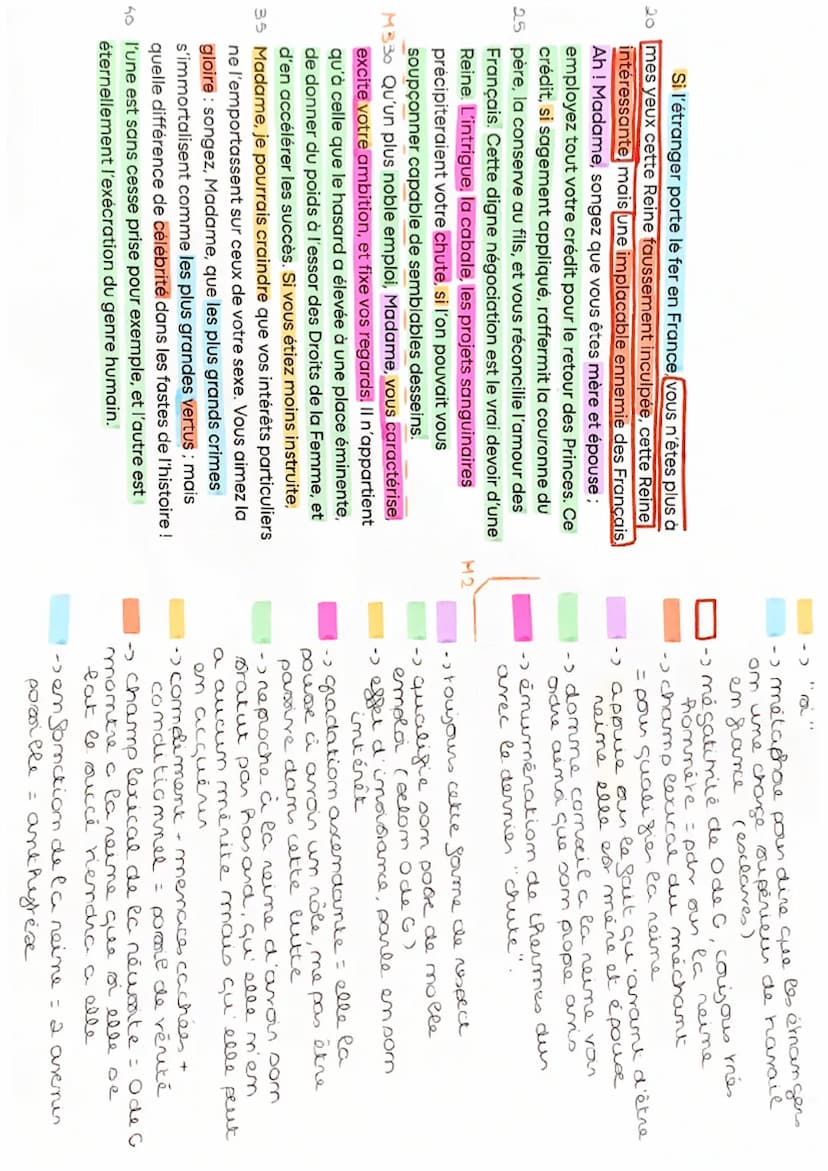 Si l'étranger porte le fer en France, vous n'êtes plus à
20 mes yeux cette Reine faussement inculpée, cette Reine
intéressante, mais une implacable ennemie des Français.
Ah ! Madame, songez que vous êtes mère et épouse ;
employez tout votre crédit pour le retour des Princes. Ce
crédit, si sagement appliqué, raffermit la couronne du
25 père, la conserve au fils, et vous réconcilie l'amour des
Français. Cette digne négociation est le vrai devoir d'une
Reine. L'intrigue, la cabale, les projets sanguinaires
précipiteraient votre chute, si l'on pouvait vous
soupçonner capable de semblables desseins.
M3 30 Qu'un plus noble emploi, Madame, vous caractérise,
excite votre ambition, et fixe vos regards. Il n'appartient
qu'à celle que le hasard a élevée à une place éminente,
de donner du poids à l'essor des Droits de la Femme, et
d'en accélérer les succès. Si vous étiez moins instruite,
35 Madame, je pourrais craindre que vos intérêts particuliers
ne l'emportassent sur ceux de votre sexe. Vous aimez la
gloire : songez, Madame, que les plus grands crimes
s'immortalisent comme les plus grandes vertus ; mais
quelle différence de célébrité dans les fastes de l'histoire !
40 l'une est sans cesse prise pour exemple, et l'autre est
éternellement l'exécration du genre humain.
-> "si"
-> métaphore pour dire que les étrangers
ont une charge supérieur de travail
en france (esclaves)
-> négativité de O de G, toujours très
honnère = pdv sur la reine
-> champ lexical du méchant
= pour qualifier la reine
-> appuie sur le fait qu'avant d'être
reine elle est mère et épouse
-> donne conseil a la reine via
ordre ainsi que son propre avis
-> énumération de thermes durs
avec le dernier "chute".
M2
-> toujours cette forme de respect
-> qualifie son poste de noble
emploi (selon O de G)
-> effet d'insistance, parle en son
intérêt
-> gradation ascendante = elle la
pousse à avoir un rôle, ne pas être
passive dans cette lutte
-> reproche à la reine d'avoir son
statut par hasard, qu'elle n'en
a aucun mérite mais qu'elle peut
en acquérir
-> compliment + menaces cachées +
conditionnel = porté de vérité
-> champ lexical de la réussite = O de G
montre a la reine que si elle se
bat le succé viendra a elle
-> en fonction de la reine = 2 avenirs
possible = anthythèse